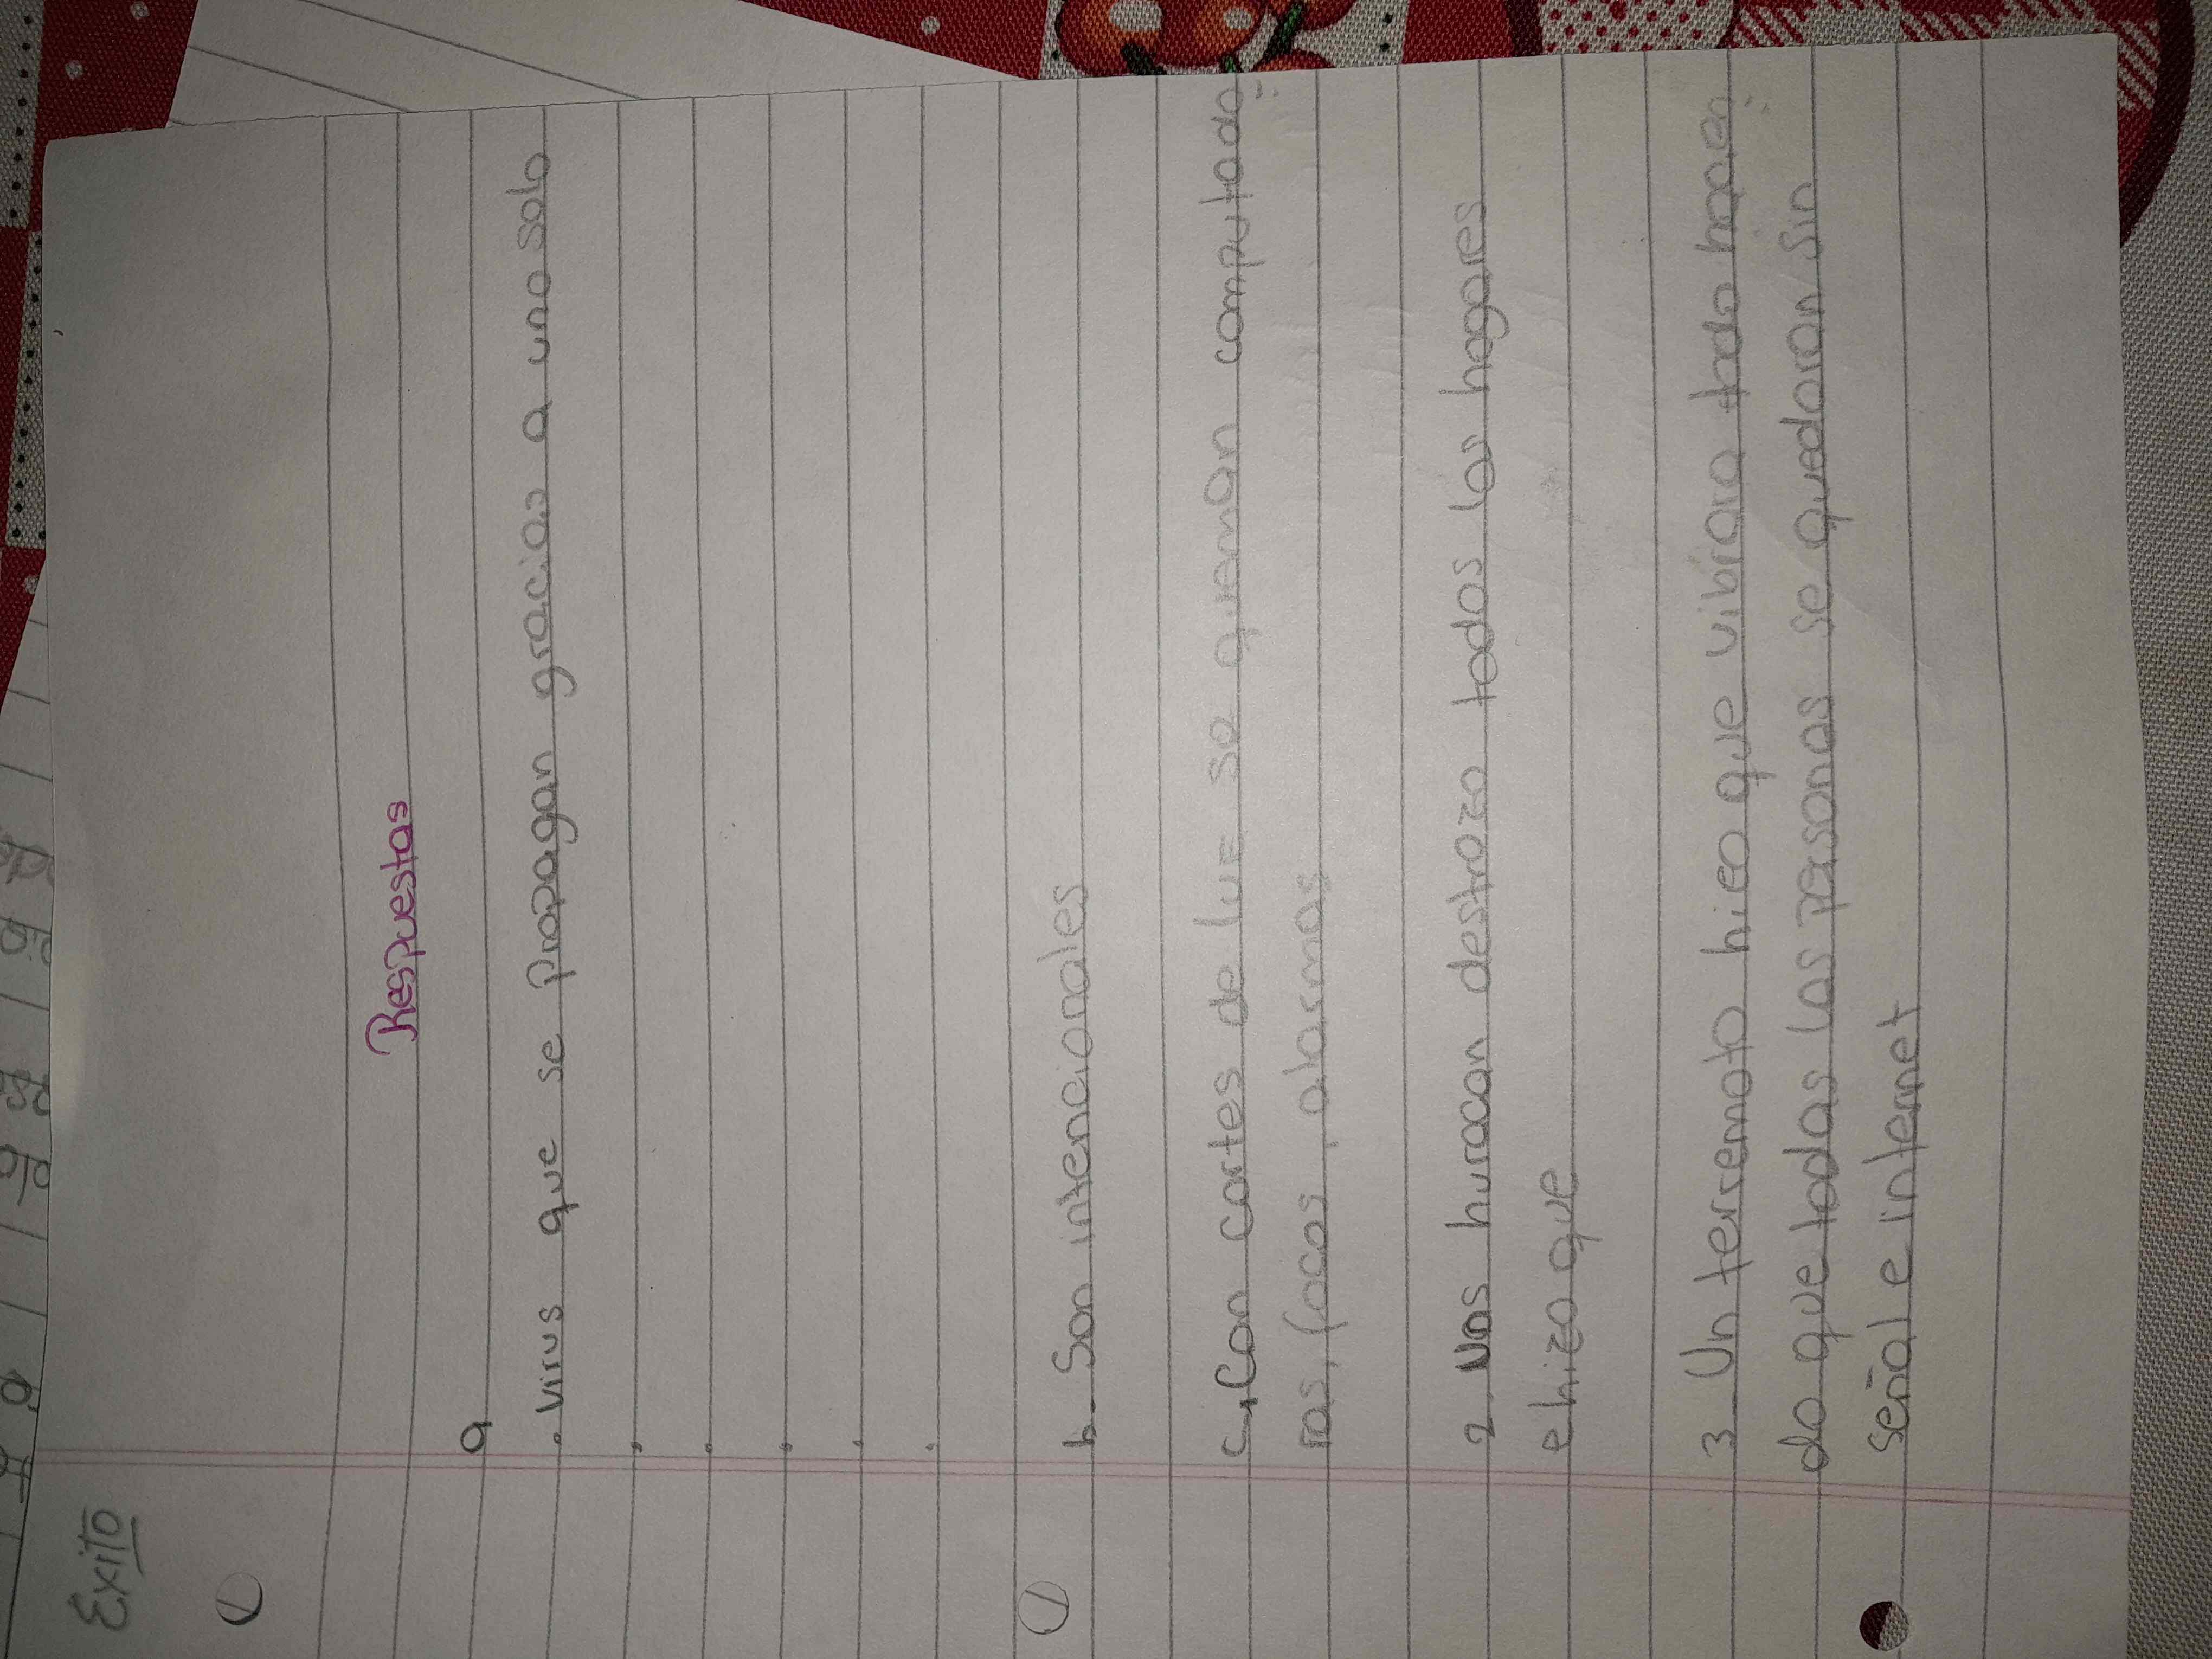 Exito
Respuestas
a
. Virus que se propagan gracias a uno solo
.
.
.
.
.
b- Son intencionales
c, Con cortes de luz se queman computado
ras, focos, alarmas
2 Uns huracan destrozo todos los hogares
e hizo que
3- Un terremoto hizo que vibrara todo hacien
do que todas las personas se quedaran sin
señal e internet